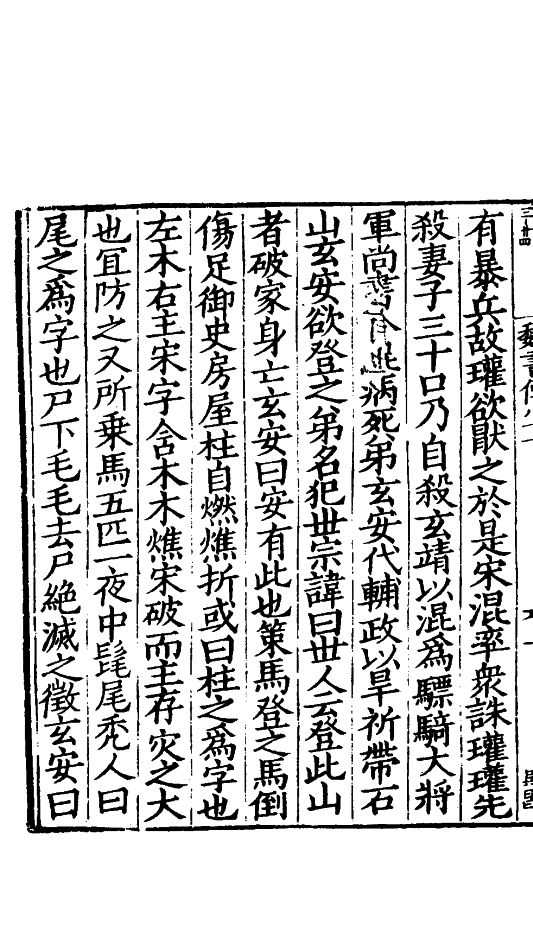 有暴兵故瓘欲厭之於是宋混率衆誅瓘瓘先
殺妻子三十口乃自殺玄靖以混爲驃騎大將
軍尚書有疾病死弟玄安代輔政以旱祈帶石
山玄安欲登之弟名犯世宗諱曰世人云登此山
者破家身亡玄安曰安有此也策馬登之馬倒
傷足御史房屋柱自燃燋折或曰柱之爲字也
左木右主宋字含木木燋宋破而主存灾之大
也宜防之又所乗馬五匹一夜中髦尾秃人曰
尾之爲字也尸下毛毛去尸絕滅之徵玄安曰